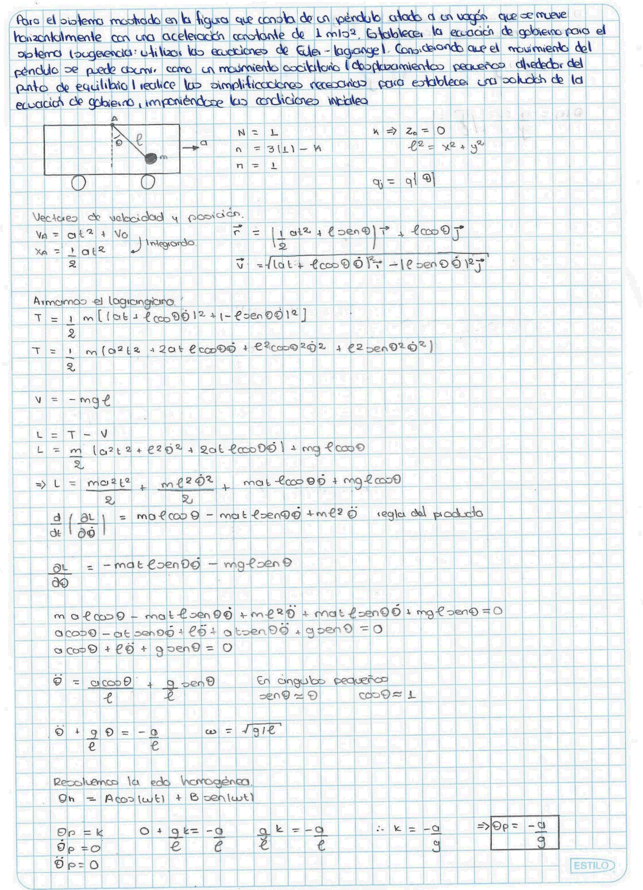 Para el problema mostrado en la figura que consta de un péndulo atado a un vagón que se mueve
horizontalmente con una aceleración constante de 1 m/s². Establecer la ecuación de gobierno para el
problema (sugerencia: utilizar las ecuaciones de Euler-lagrange). Considerando que el movimiento del
péndulo se puede asumir como un movimiento oscilatorio (desplazamientos pequeños alrededor del
punto de equilibrio) realice las simplificaciones necesarias para establecer una solución de la
ecuación de gobierno, imponiéndose las condiciones iniciales
A
θ
ℓ
m
→ a
N = 1
n = 3(1) - κ
n = 1
κ ⇒ z₀ = 0
ℓ² = x² + y²
q = q(θ)
Vectores de velocidad y posición.
VA = at² + V₀
XA = 1/2 at²
Integrando
r⃗ = (1/2 at² + ℓsenθ)i⃗ + ℓcosθj⃗
v⃗ = √(at + ℓcosθθ̇)²i⃗ - (ℓsenθθ̇)²j⃗
Armamos el lagrangiano
T = 1/2 m[(at + ℓcosθθ̇)² + (-ℓsenθθ̇)²]
T = 1/2 m(a²t² + 2atℓcosθθ̇ + ℓ²cosθ²θ̇² + ℓ²senθ²θ̇²)
V = -mgℓ
L = T - V
L = m/2 (a²t² + ℓ²θ̇² + 2atℓcosθθ̇) + mgℓcosθ
⇒ L = ma²t²/2 + mℓ²θ̇²/2 + matℓcosθθ̇ + mgℓcosθ
d/dt (∂L/∂θ̇) = maℓcosθ - matℓsenθθ̇ + mℓ²θ̈ regla del producto
∂L/∂θ = -matℓsenθθ̇ - mgℓsenθ
maℓcosθ - matℓsenθθ̇ + mℓ²θ̈ + matℓsenθθ̇ + mgℓsenθ = 0
acosθ - atsenθθ̇ + ℓθ̈ + atsenθθ̇ + gsenθ = 0
acosθ + ℓθ̈ + gsenθ = 0
θ̈ = acosθ/ℓ + g/ℓ senθ
En ángulos pequeños
senθ ≈ θ cosθ ≈ 1
θ̈ + g/ℓ θ = -a/ℓ ω = √g/ℓ
Resolvemos la edo homogénea
θh = Acos(ωt) + Bsen(ωt)
θp = k 0 + g/ℓ k = -a/ℓ g/ℓ k = -a/ℓ ∴ k = -a/g ⇒ θp = -a/g
θ̇p = 0
θ̈p = 0
ESTILO